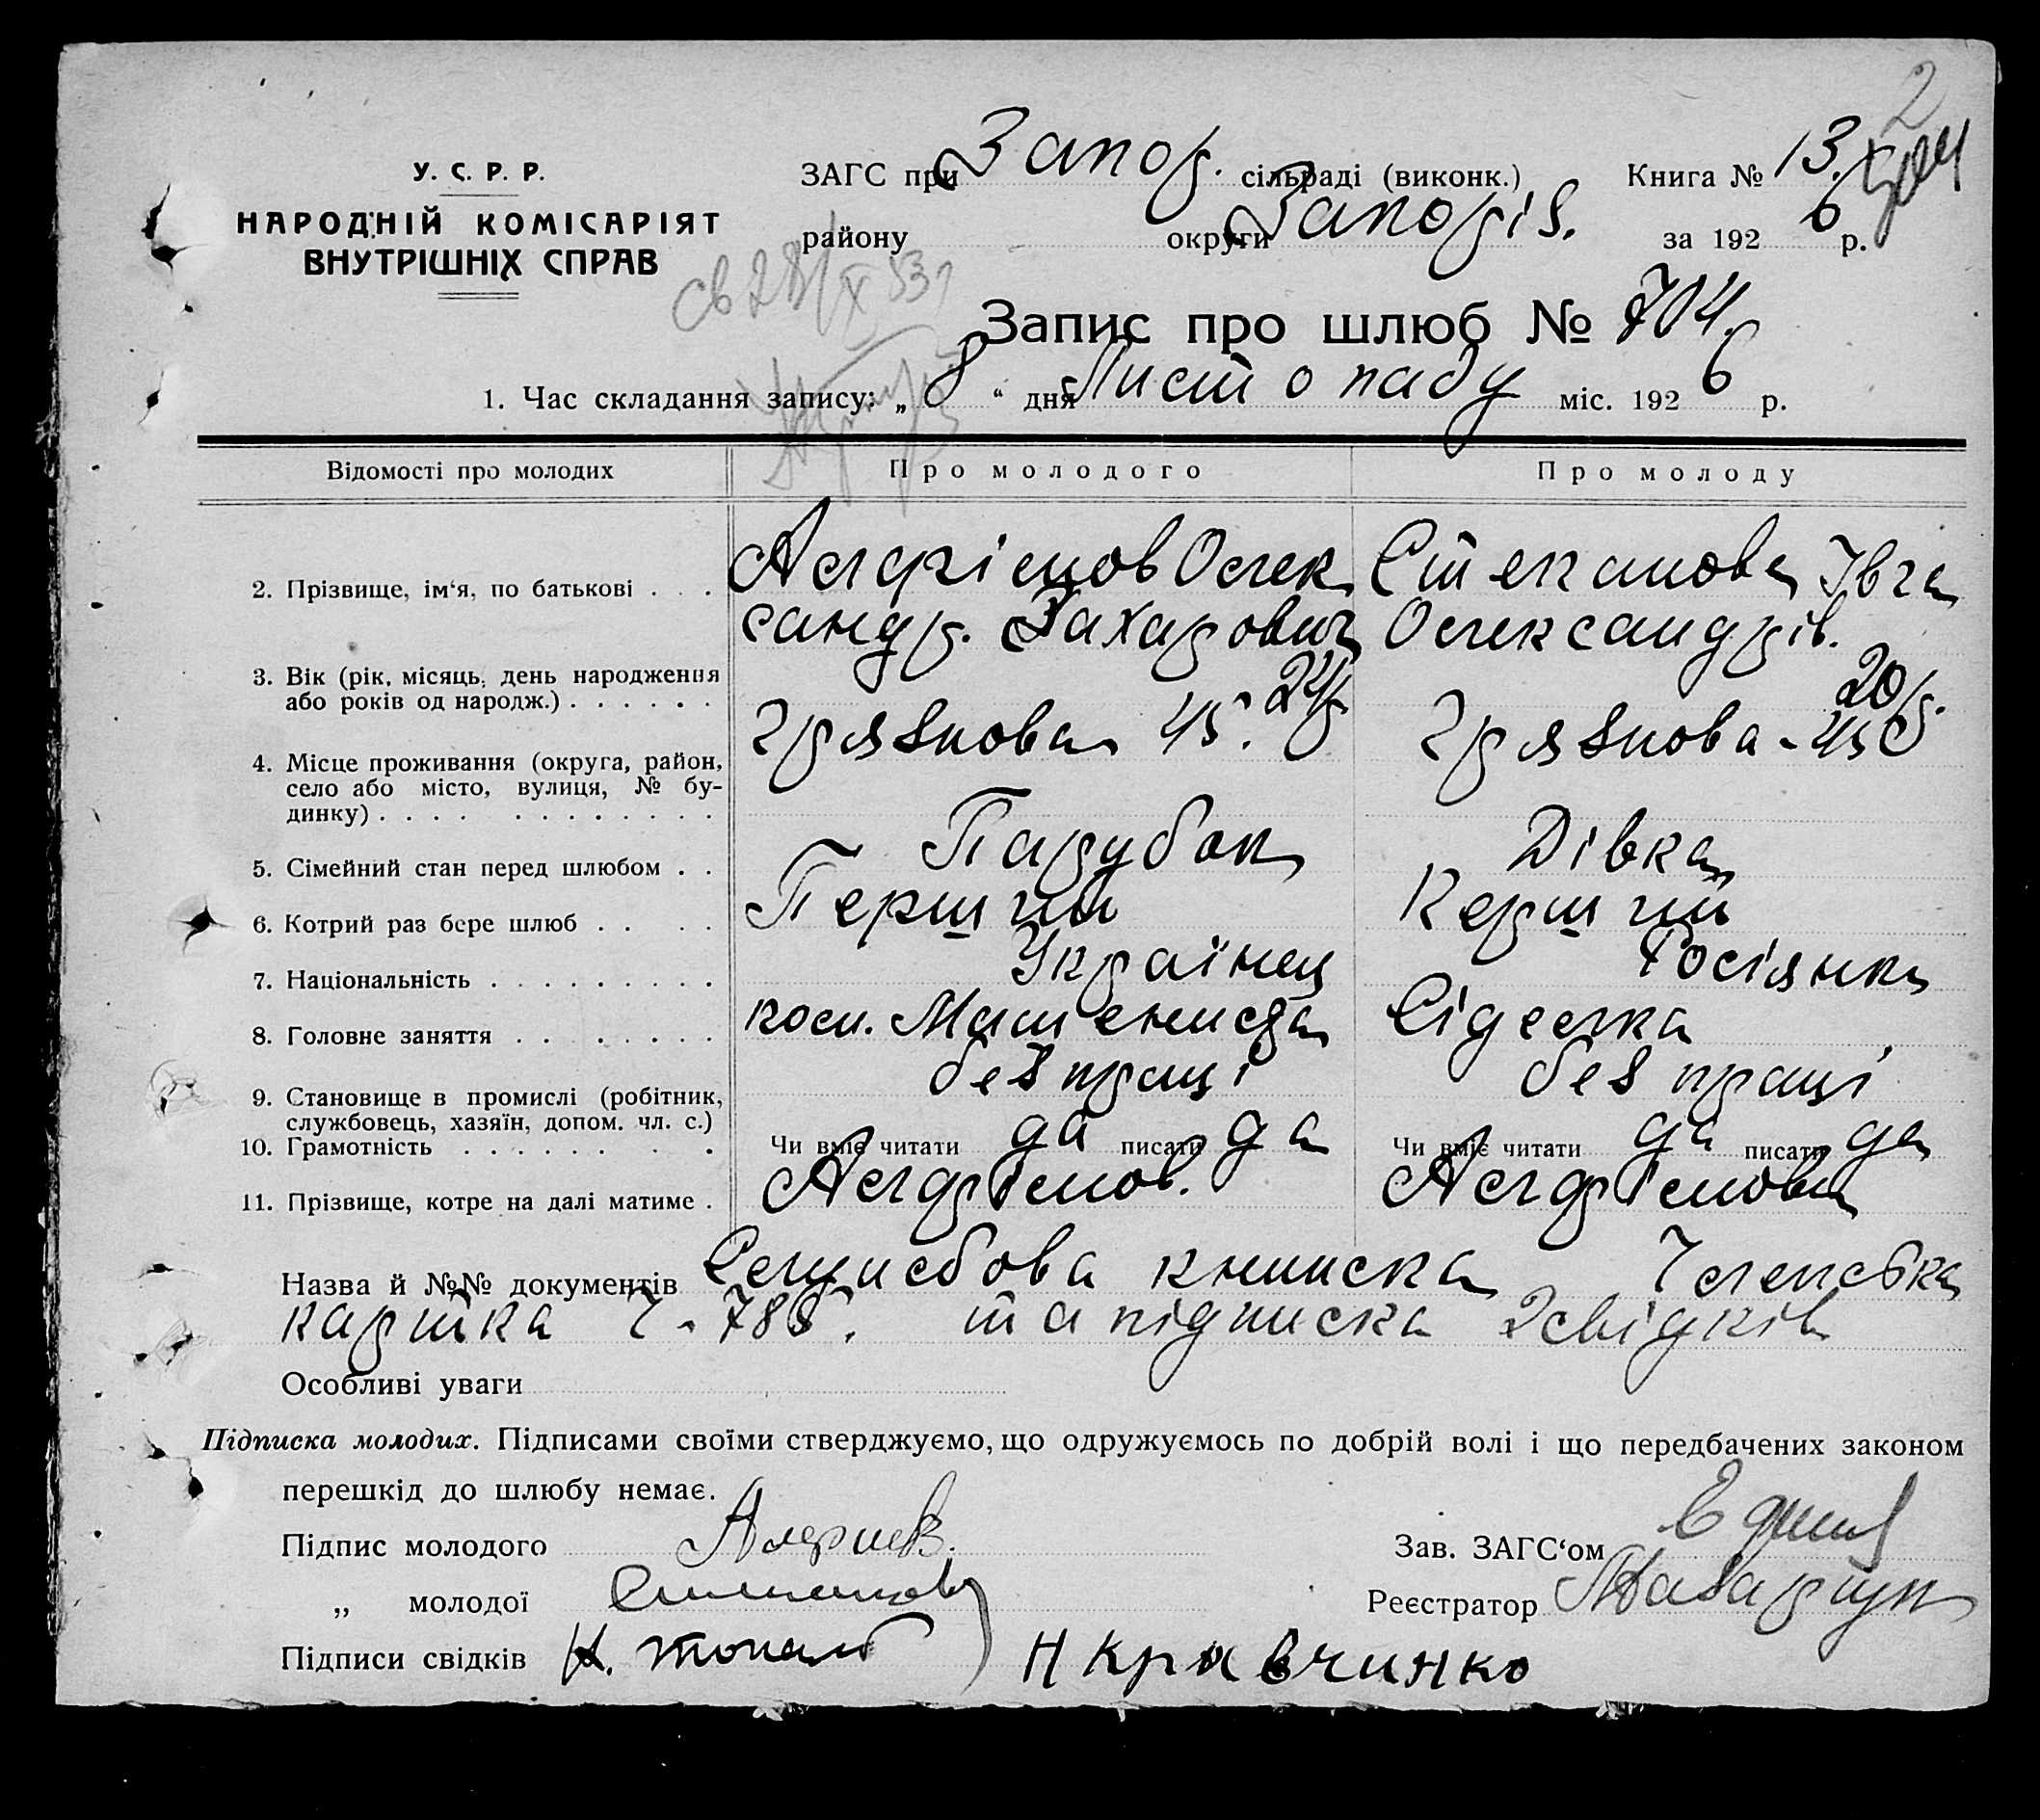 2
У. С. Р. Р.
НАРОДНІЙ КОМІСАРІЯТ
ВНУТРІШНІХ СПРАВ
ЗАГС при Запор. сільраді (виконк.) Книга № 13.
району округи Запоріз. за 1926 р.
св 28/X 53 г
Запис про шлюб № 704.
1. Час складання запису: „8“ дня Листопаду міс. 1926 р.
Відомості про молодих Про молодого Про молоду
2. Прізвище, ім‘я, по батькові . . . Олек Степанова Івга
сандр. Захарович Олександрів.
3. Вік (рік, місяць, день народження 24р. 20р.
або років од народж.) . . . . . .
Грязнова 45. Грязнова - 45
4. Місце проживання (округа, район,
село або місто, вулиця, № бу-
динку) . . . . . . . . . . . . .
5. Сімейний стан перед шлюбом . . Парубок Дівка
6. Котрий раз бере шлюб . . . . Перший Перший
7. Національність . . . . . . . . . Українец Росіянка
8. Головне заняття . . . . . . . . Сіделка
без праці без праці
9. Становище в промислі (робітник,
службовець, хазяїн, допом. чл. с.)
10. Грамотність . . . . . . . . Чи вміє читати да писати да Чи вміє читати да писати да
11. Прізвище, котре на далі матиме .
Назва й №№ документів книшска Членська
картка та підписка 2 свідків
Особливі уваги
Підписка молодих. Підписами своїми стверджуємо, що одружуємось по добрій волі і що передбачених законом
перешкід до шлюбу немає.
Підпис молодого Зав. ЗАГС‘ом
„ молодої Реєстратор
Підписи свідків Н Кравчинко